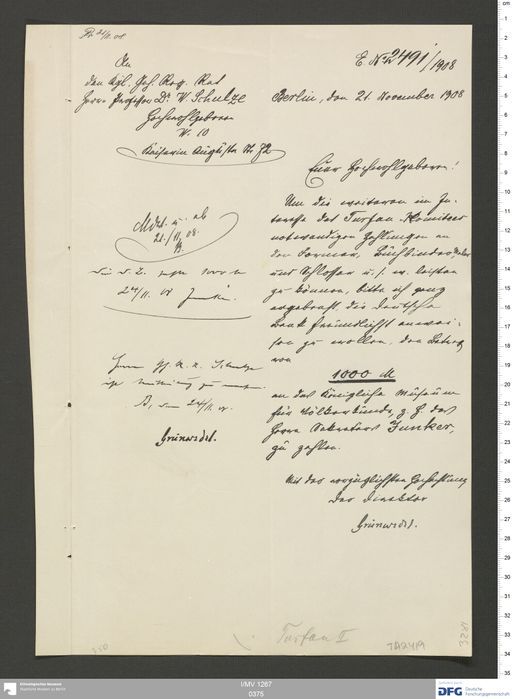 21/11. 08
E. Nr 2491/1908
An
den Kgl. Geh. Reg. Rat
Herrn Professor Dr. W. Schulze
Hochwohlgeboren
W. 10
Kaiserin Augusta Str 72
Berlin, den 21. November 1908
Euer Hochwohlgeboren!
Um die weiteren im In-
teresse des Turfan-Komitees
notwendigen Zahlungen an
den Former, Buchbinder, Maler
und Schlosser u. s. w. leisten
zu können, bitte ich ganz
ergebenst, die Deutsche
Bank freundlichst anwei-
sen zu wollen, den Betrag
von
1000 M
an das Königliche Museum
für Völkerkunde, z. H. des
Herrn Sekretars Junker,
zu zahlen.
Mit der vorzüglichsten Hochachtung
Der Direktor
Grünwedel.
ab
21./11. 08.
24/11. 08 Junker.
Herrn
24/11. 08.
Grünwedel.
Turfan I
TA2419
I/MV 1267
0375
Ethnologisches Museum
Staatliche Museen zu Berlin
DFG Deutsche
Forschungsgemeinschaft